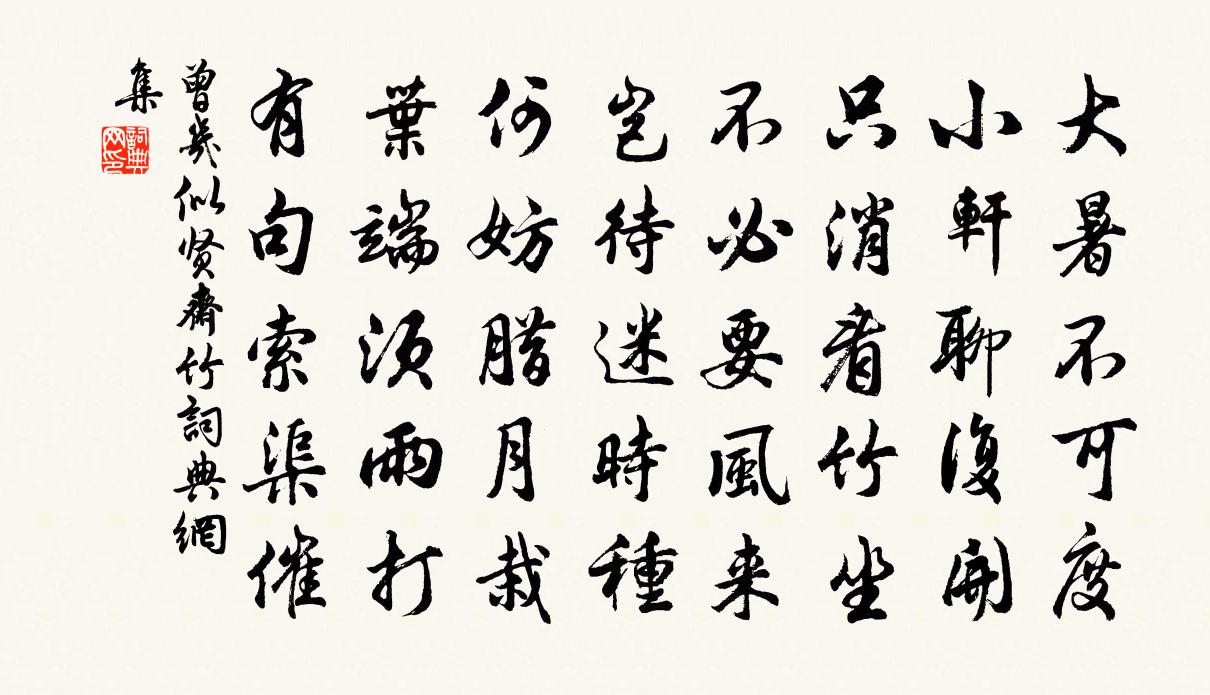 大暑不可度
小軒聊復開
只消看竹坐
不必要風来
豈待迷時種
何妨腊月栽
葉端須雨打
有句索渠催
曾幾似贤齋竹詞典網
集
詞典网印